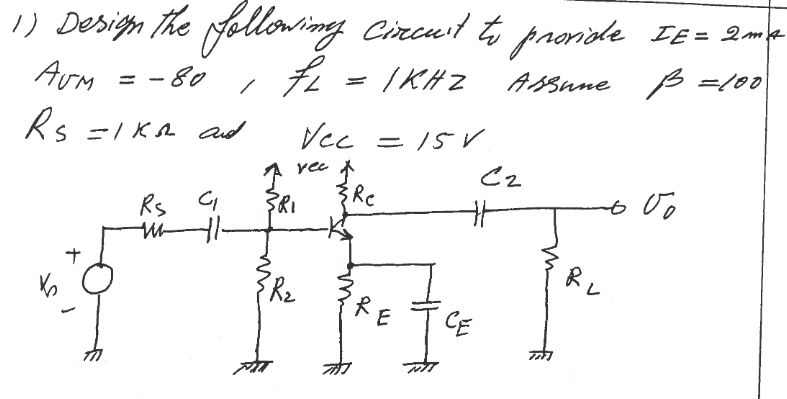 1) Design the following circuit to provide IE = 2mA
AVM = -80 , fL = 1KHZ Assume β =100
RS =1KΩ and VCC = 15V
vcc
RS C1 R1 RC C2 Vo
+
Vs R2 RE CE RL
-